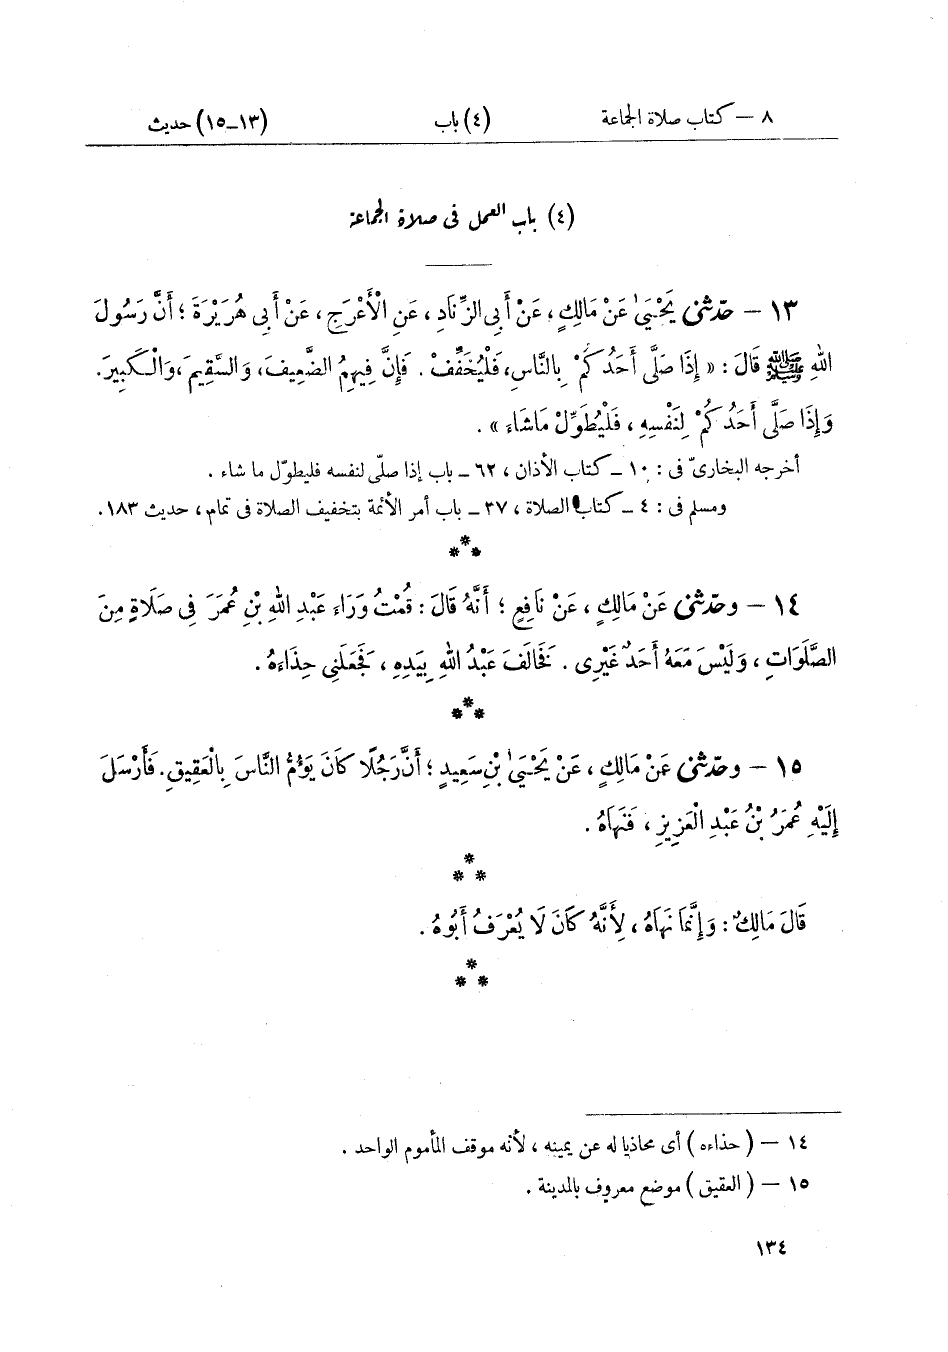 ٨ — كتاب صلاة الجماعة (٤) باب (١٣–١٥) حديث
(٤) باب العمل فى صلاة الجماعة
١٣ — حَدّثنى يَحْيَىٰ عَنْ مَالِكٍ، عَنْ أَبِى الزِّنَادِ، عَنِ الْأَعْرَجِ، عَنْ أَبِى هُرَيْرَةَ؛ أَنَّ رَسُولَ
اللهِ ﷺ قَالَ: « إِذَا صَلَّى أَحَدُكُمْ بِالنَّاسِ، فَلْيُخَفِّفْ. فَإِنَّ فِيهِمُ الضَّعِيفَ، وَالسَّقِيمَ، وَالْكَبِيرَ.
وَإِذَا صَلَّى أَحَدُكُمْ لِنَفْسِهِ، فَلْيُطَوِّلْ مَاشَاءَ ».
أخرجه البخارىّ فى: ١٠ – كتاب الأذان، ٦٢ – باب إذا صلّى لنفسه فليطوّل ما شاء.
ومسلم فى: ٤ – كتاب الصلاة، ٣٧ – باب أمر الأئمة بتخفيف الصلاة فى تمام، حديث ١٨٣.
***
١٤ — وحَدّثنى عَنْ مَالِكٍ، عَنْ نَافِعٍ؛ أَنَّهُ قَالَ: قُمْتُ وَرَاءَ عَبْدِ اللهِ بْنِ عُمَرَ فِى صَلَاةٍ مِنَ
الصَّلَوَاتِ، وَلَيْسَ مَعَهُ أَحَدٌ غَيْرِى. فَخَالَفَ عَبْدُ اللهِ بِيَدِهِ، فَجَعَلَنِى حِذَاءَهُ.
***
١٥ — وحَدّثنى عَنْ مَالِكٍ، عَنْ يَحْيَىٰ بْنِ سَعِيدٍ؛ أَنَّ رَجُلًا كَانَ يَؤُمُّ النَّاسَ بِالْعَقِيقِ. فَأَرْسَلَ
إِلَيْهِ عُمَرُ بْنُ عَبْدِ الْعَزِيزِ، فَنَهَاهُ.
***
قَالَ مَالِكٌ: وَإِنَّمَا نَهَاهُ، لِأَنَّهُ كَانَ لَا يُعْرَفُ أَبُوهُ.
***
١٤ — (حذاءه) أى محاذيا له عن يمينه، لأنه موقف المأموم الواحد.
١٥ — (العقيق) موضع معروف بالمدينة.
١٣٤